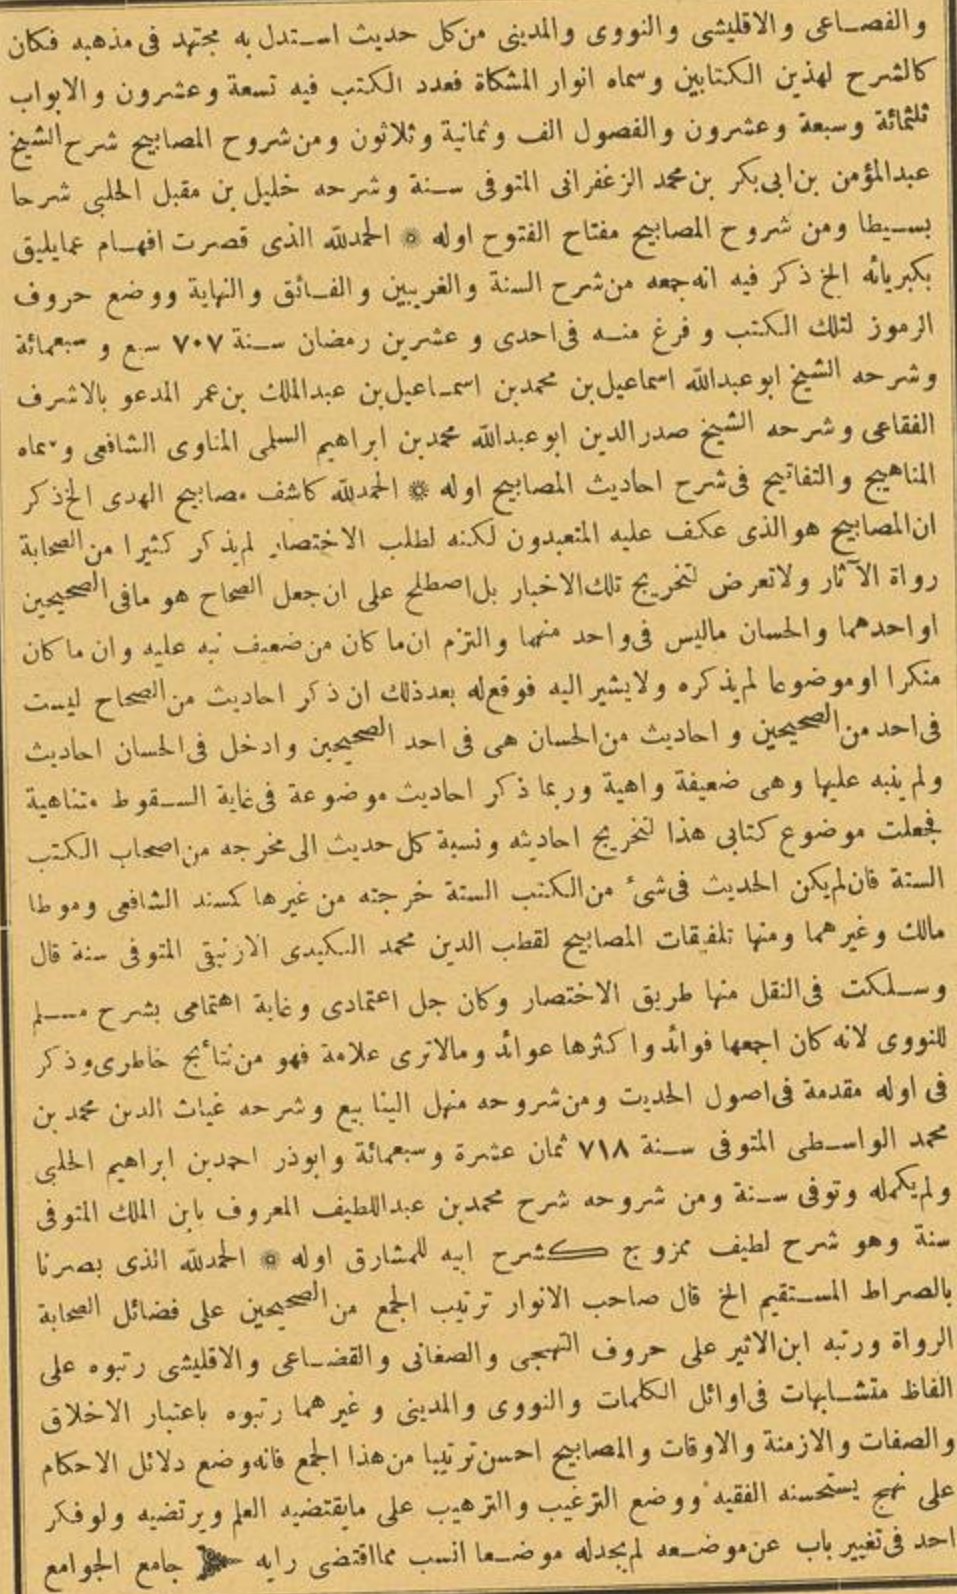 والفصاعى والاقليشى والنووى والمدينى من كل حديث استدل به مجتهد فى مذهبه فكان
كالشرح لهذين الكتابين وسماه انوار المشكاة فعدد الكتب فيه تسعة وعشرون والابواب
ثلثمائة وسبعة وعشرون والفصول الف وثمانية وثلاثون ومن شروح المصابيح شرح الشيخ
عبدالمؤمن بن ابى بكر بن محمد الزعفرانى المتوفى سنة وشرحه خليل بن مقبل الحلبى شرحا
بسيطا ومن شروح المصابيح مفتاح الفتوح اوله ۞ الحمدلله الذى قصرت افهام عما يليق
بكبريائه الخ ذكر فيه انه جمعه من شرح السنة والغريبين والفائق والنهاية ووضع حروف
الرموز لتلك الكتب و فرغ منه فى احدى و عشرين رمضان سنة ٧٠٧ سبع و سبعمائة
وشرحه الشيخ ابو عبدالله اسماعيل بن محمد بن اسماعيل بن عبدالملك بن عمر المدعو بالاشرف
الفقاعى وشرحه الشيخ صدر الدين ابو عبدالله محمد بن ابراهيم السلمى المناوى الشافعى وسماه
المناهيج والتفاتيح فى شرح احاديث المصابيح اوله ۞ الحمدلله كاشف مصابيح الهدى الخ ذكر
ان المصابيح هو الذى عكف عليه المتعبدون لكنه لطلب الاختصار لم يذكر كثيرا من الصحابة
رواة الآثار ولا تعرض لتخريج تلك الاخبار بل اصطلح على ان جعل الصحاح هو مافى الصحيحين
او احدهما والحسان ماليس فى واحد منهما والتزم ان ما كان من ضعيف نبه عليه وان ما كان
منكرا او موضوعا لم يذكره ولا يشير اليه فوقع له بعد ذلك ان ذكر احاديث من الصحاح ليست
فى احد من الصحيحين و احاديث من الحسان هى فى احد الصحيحين وادخل فى الحسان احاديث
ولم ينبه عليها وهى ضعيفة واهية وربما ذكر احاديث موضوعة فى غاية السقوط متناهية
فجعلت موضوع كتابى هذا لتخريج احاديثه ونسبة كل حديث الى مخرجه من اصحاب الكتب
الستة فان لم يكن الحديث فى شىء من الكتب الستة خرجته من غيرها كمسند الشافعى وموطا
مالك وغيرهما ومنها تلفيقات المصابيح لقطب الدين محمد النكيدى الازنيقى المتوفى سنة قال
وسلكت فى النقل منها طريق الاختصار وكان جل اعتمادى وغاية اهتمامى بشرح مسلم
للنووى لانه كان اجمعها فوائد واكثرها عوائد ومالاترى علامة فهو من نتائج خاطرى وذكر
فى اوله مقدمة فى اصول الحديث ومن شروحه منهل الينابيع وشرحه غياث الدين محمد بن
محمد الواسطى المتوفى سنة ٧١٨ ثمان عشرة وسبعمائة وابوذر احمد بن ابراهيم الحلبى
ولم يكمله وتوفى سنة ومن شروحه شرح محمد بن عبداللطيف المعروف بابن الملك المتوفى
سنة وهو شرح لطيف ممزوج كشرح ابيه للمشارق اوله ۞ الحمدلله الذى بصرنا
بالصراط المستقيم الخ قال صاحب الانوار ترتيب الجمع من الصحيحين على فضائل الصحابة
الرواة ورتبه ابن الاثير على حروف التهجى والصغانى والقضاعى والاقليشى رتبوه على
الفاظ متشابهات فى اوائل الكلمات والنووى والمدينى و غيرهما رتبوه باعتبار الاخلاق
والصفات والازمنة والاوقات والمصابيح احسن ترتيبا من هذا الجمع فانه وضع دلائل الاحكام
على نهج يستحسنه الفقيه ووضع الترغيب والترهيب على مايقتضيه العلم ويرتضيه ولو فكر
احد فى تغيير باب عن موضعه لم يجدله موضعا انسب مما اقتضى رايه جامع الجوامع